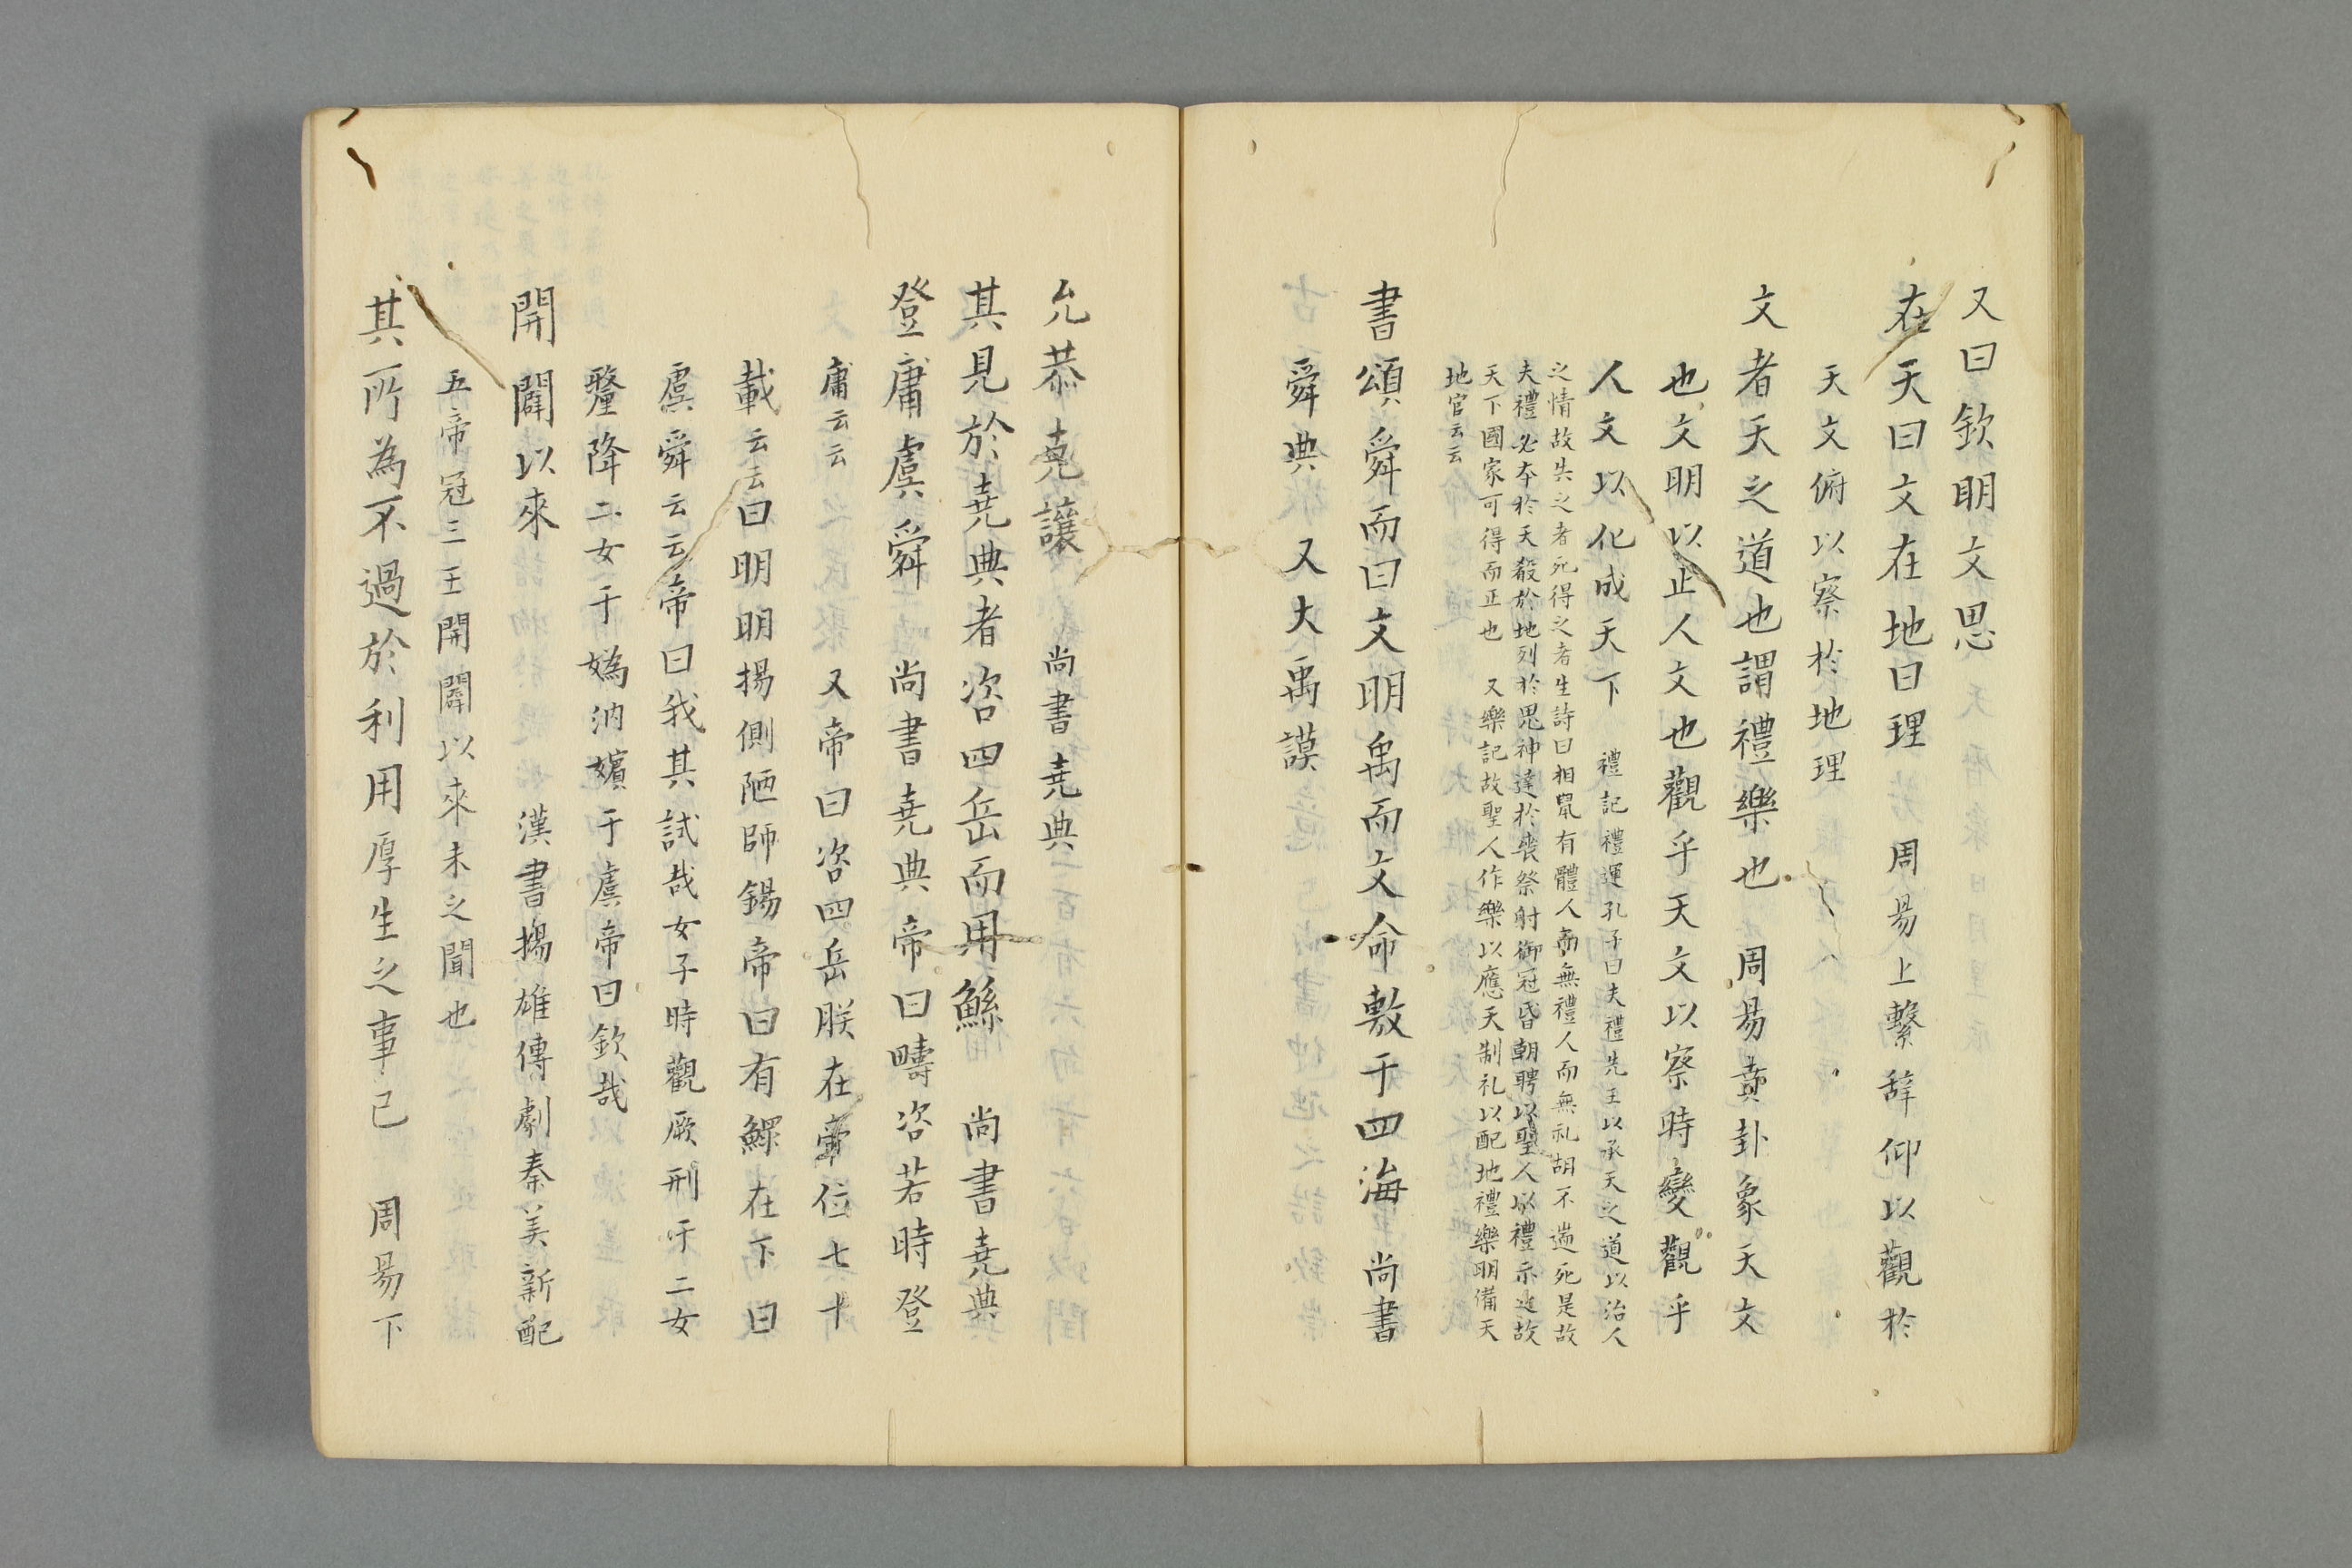 又曰欽明文思
在天曰文在地曰理 周易上繫辞仰以觀於
天文俯以察於地理
文者天之道也謂禮樂也 周易賁卦彖天文
也文明以止人文也觀乎天文以察時變觀乎
人文以化成天下 禮記禮運孔子曰夫禮先王以承天之道以治人
之情故失之者死得之者生詩曰相鼠有體人而無禮人而無礼胡不遄死是故
夫禮必本於天殽於地列於鬼神達於喪祭射御冠昏朝聘以聖人以禮示之故
天下國家可得而正也 又樂記故聖人作樂以應天制礼以配地禮樂明備天
地官云云
書頌舜而曰文明禹而文命敷于四海 尚書
舜典 又大禹謨
允恭堯讓 尚書堯典
其見於堯典者咨四岳而用鯀 尚書堯典
登庸虞舜 尚書堯典帝曰疇咨若時登
庸云云 又帝曰咨四岳朕在位七十
載云云曰明明揚側陋師錫帝曰有鰥在下曰
虞舜云云帝曰我其試哉女子時觀厥刑于二女
釐降二女于嬀汭嬪于虞帝曰欽哉
開闢以來 漢書揚雄傳劇秦美新配
五帝冠三王開闢以來未之聞也
其所為不過於利用厚生之事已 周易下